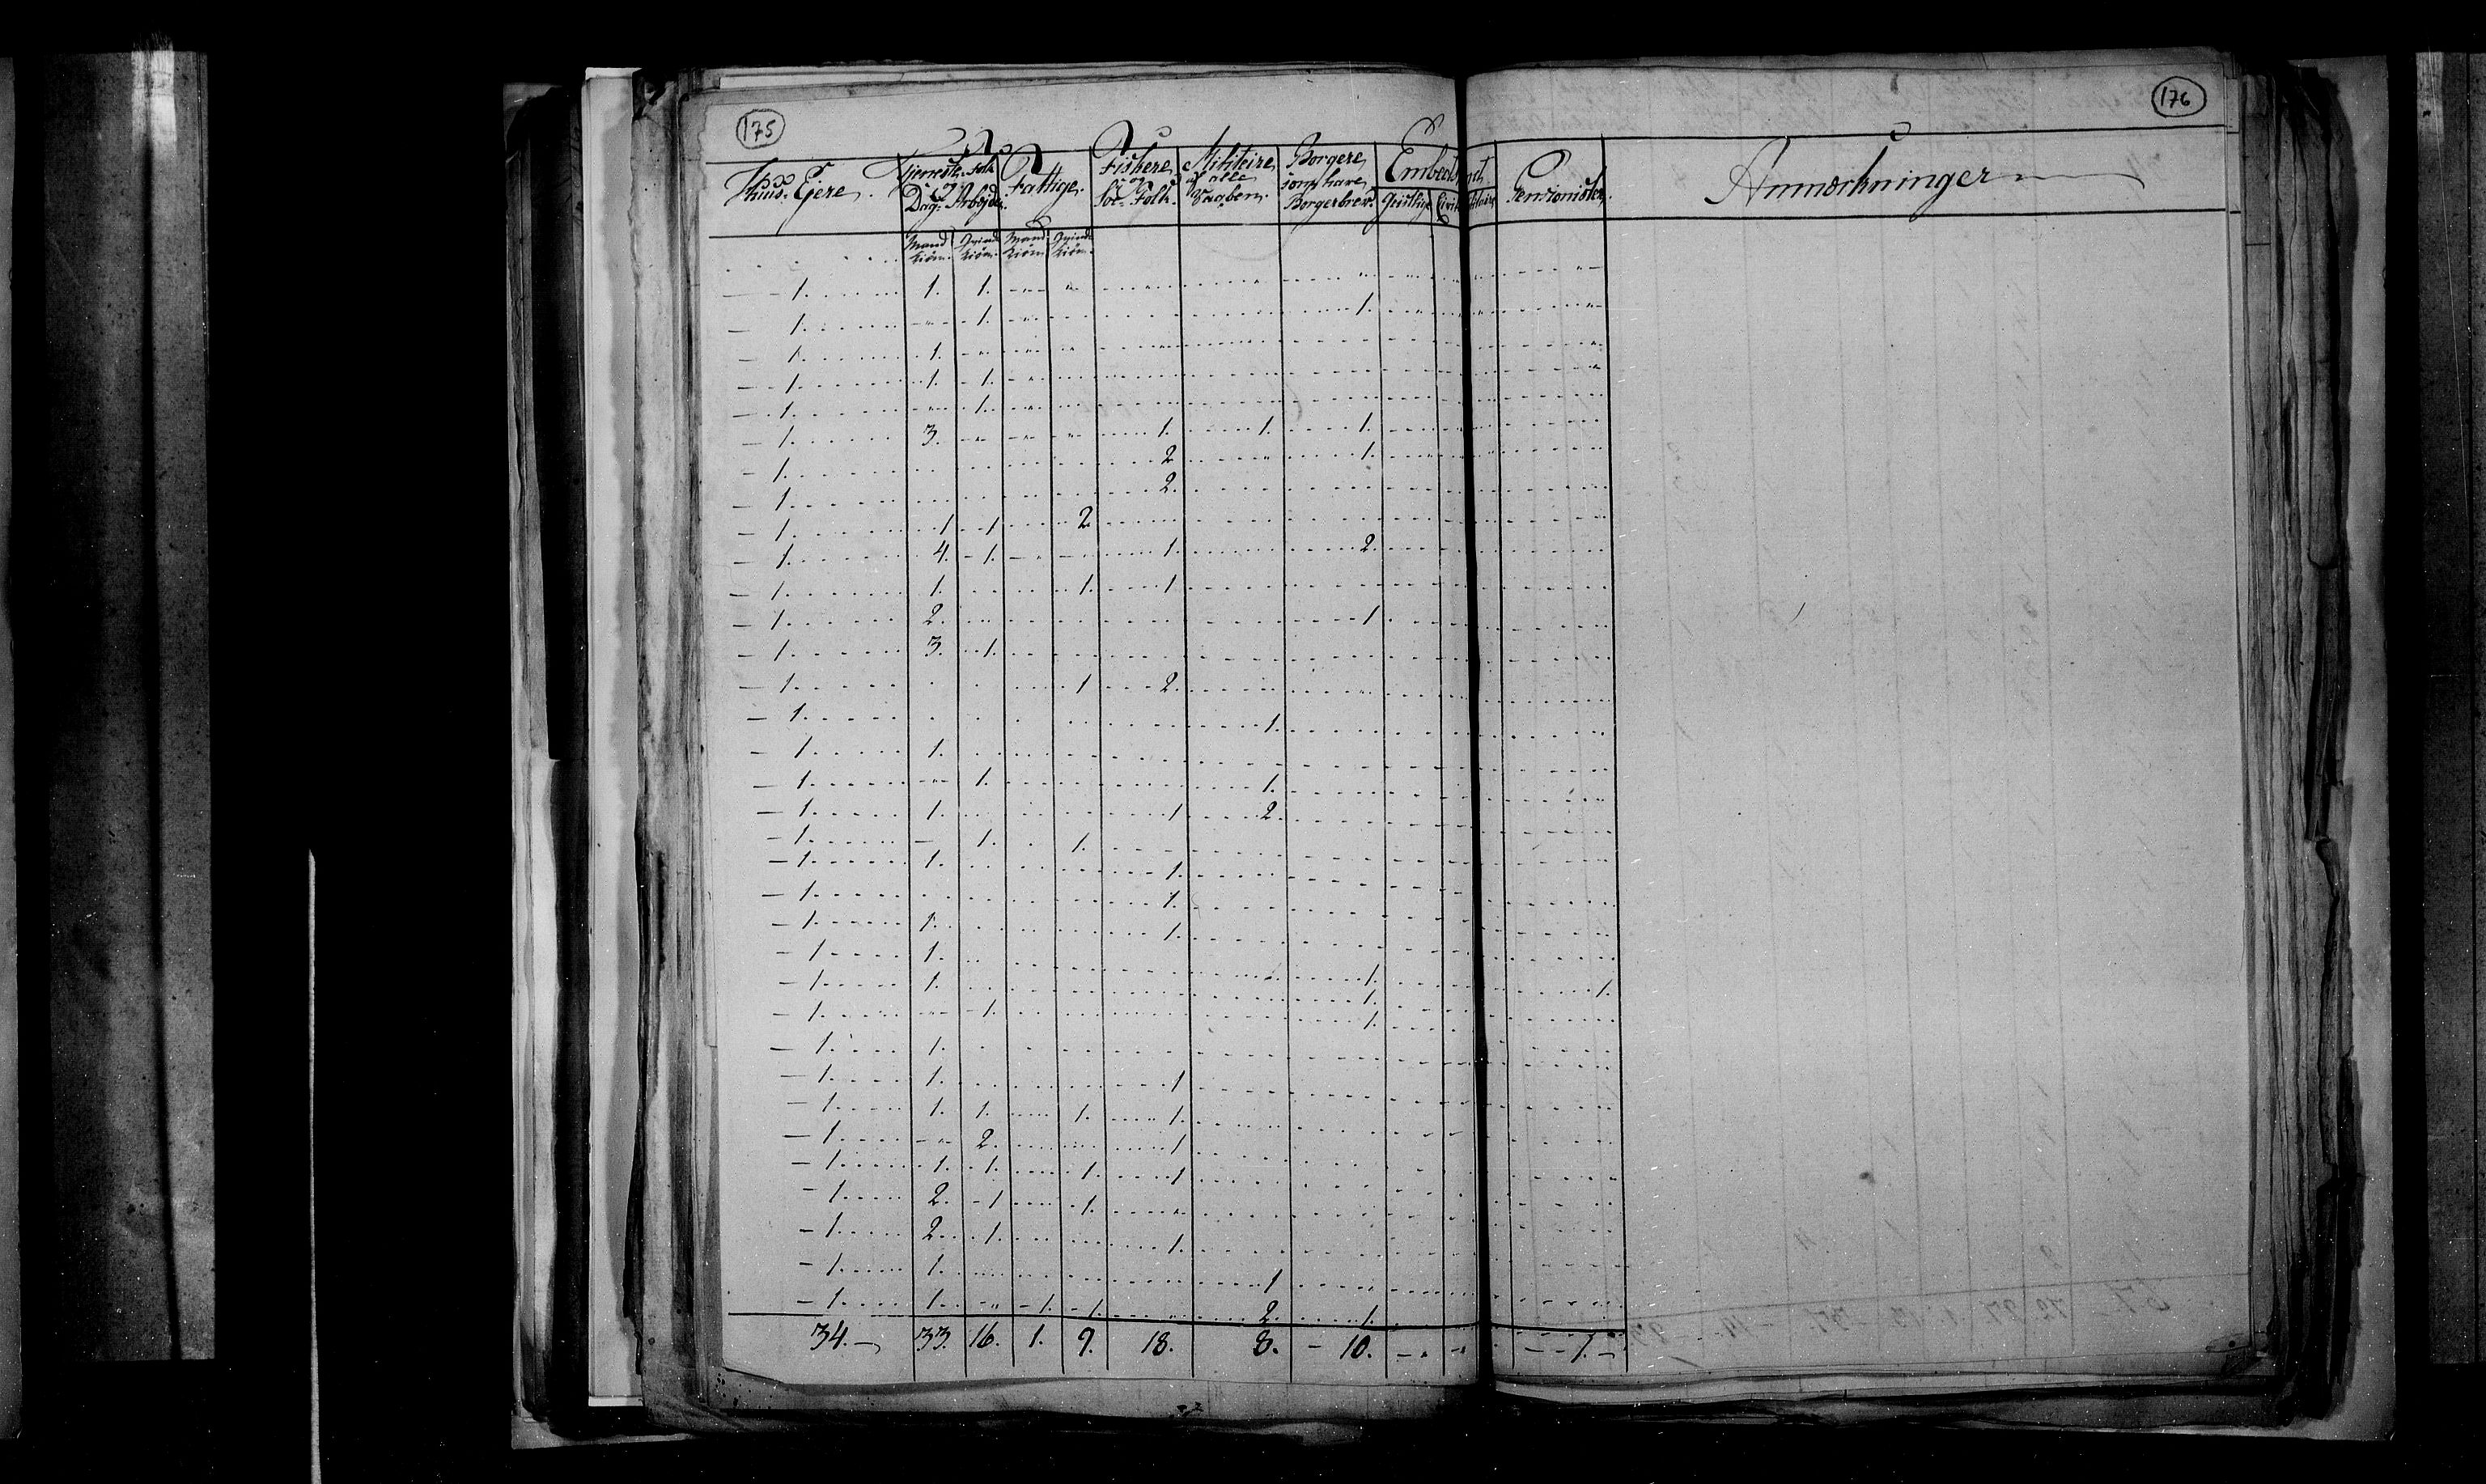 175
176
Huus-Ejere. Tjeneste-Folk og Dag-Arbejdere. Fattige. Fiskere og Söe-Folk. Militeire af alle Vaaben. Borgere som have Borgerbrev. Embeds Geistlige Civile Pensionister. Anmærkninger
Mand Kiön. Qvinde Kiön. Mand Kiön. Qvinde Kiön.
1. 1. 1.
1. 1. 1.
1. 1.
1. 1. 1.
1. 1.
1. 3. 1. 1. 1.
1. 2 1.
1. 2.
1. 1 1 2
1. 4. 1. 1. 2.
1. 1. 1. 1
1. 2. 1
1. 3. 1.
1. 1 2.
1. 1.
1. 1.
1. 1. 1.
1. 1. 1 2.
1. 1. 1.
1. 1. 1.
1. 1.
1. 1. 1.
1. 1. 1.
1. 1. 1. 1.
1. 1. 1.
1. 1.
1. 1. 1
1. 1. 1. 1. 1.
1. 2. 1
1. 1. 1. 1. 1
1. 2. 1 1.
1. 2. 1. 1.
1. 1. 1
1. 1. 1. 1. 2. 1.
34. 33. 16. 1. 9. 18. 8. 10. 1.